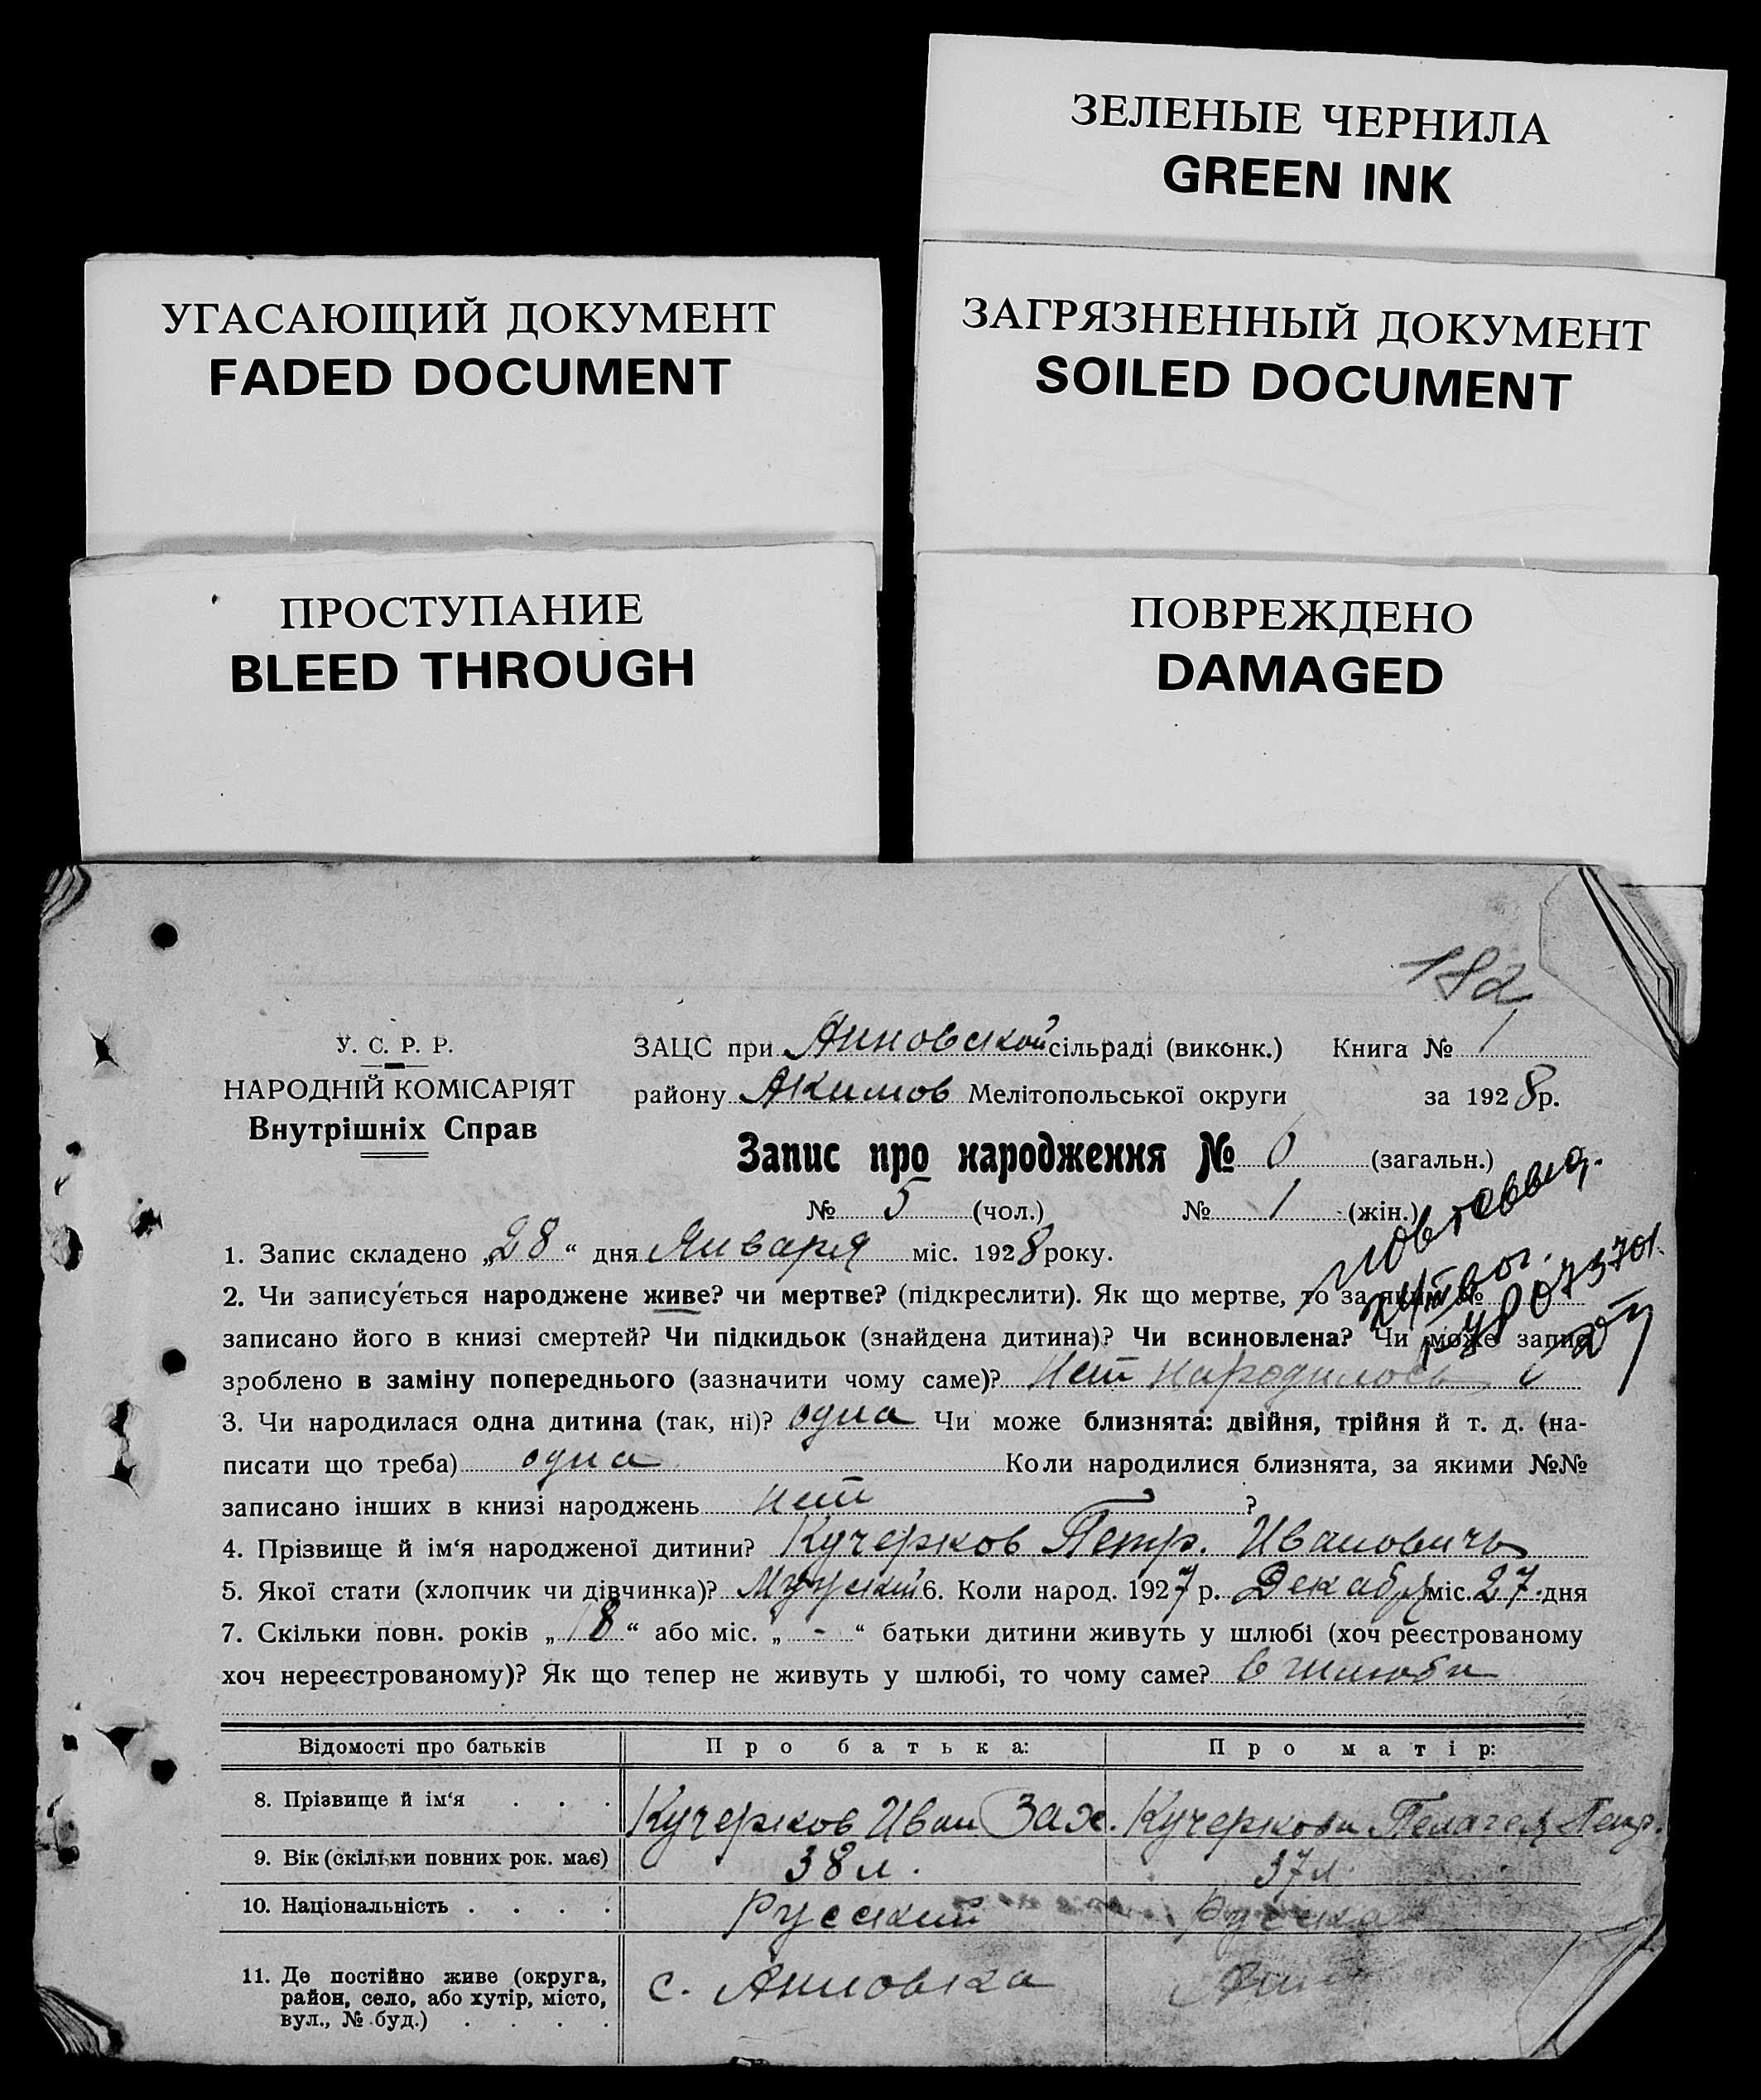 ЗЕЛЕНЫЕ ЧЕРНИЛА
GREEN INK
УГАСАЮЩИЙ ДОКУМЕНТ
FADED DOCUMENT
ЗАГРЯЗНЕННЫЙ ДОКУМЕНТ
SOILED DOCUMENT
ПРОСТУПАНИЕ
BLEED THROUGH
ПОВРЕЖДЕНО
DAMAGED
182
У. С. Р. Р.
НАРОДНІЙ КОМІСАРІЯТ
Внутрішніх Справ
ЗАЦС при Анновской сільраді (виконк.) Книга № 1
району Акимов Мелітопольської округи за 1928р.
Запис про народження № 6 (загальн.)
№ 5 (чол.) № 1 (жін.)
1. Запис складено „28“ дня Января міс. 1928 року.
2. Чи записується народжене живе? чи мертве? (підкреслити). Як що мертве, то за яким №
записано його в книзі смертей? Чи підкидьок (знайдена дитина)? Чи всиновлена? Чи може запис
зроблено в заміну попереднього (зазначити чому саме)? нет народилось
3. Чи народилася одна дитина (так, ні)? одна Чи може близнята: двійня, трійня й т. д. (на-
писати що треба) одна Коли народилися близнята, за якими №№
записано інших в книзі народжень нет ?
4. Прізвище й ім‘я народженої дитини? Кучерков Петр. Ивановичь
5. Якої стати (хлопчик чи дівчинка)? Мужский 6. Коли народ. 1927 р. Декабря міс. 27 дня
7. Скільки повн. років „18“ або міс. „-“ батьки дитини живуть у шлюбі (хоч реєстрованому
хоч нереєстрованому)? Як що тепер не живуть у шлюбі, то чому саме? в шлюби
Відомості про батьків Про батька: Про матір:
8. Прізвище й ім‘я . . . Кучерков Иван Зах. Кучеркова Пелагея Петр.
9. Вік (скільки повних рок. має) 38 л. 37 л.
10. Національність . . . . Русский Русская
11. Де постійно живе (округа,
район, село, або хутір, місто,
вул., № буд.) . . . . с. Анновка